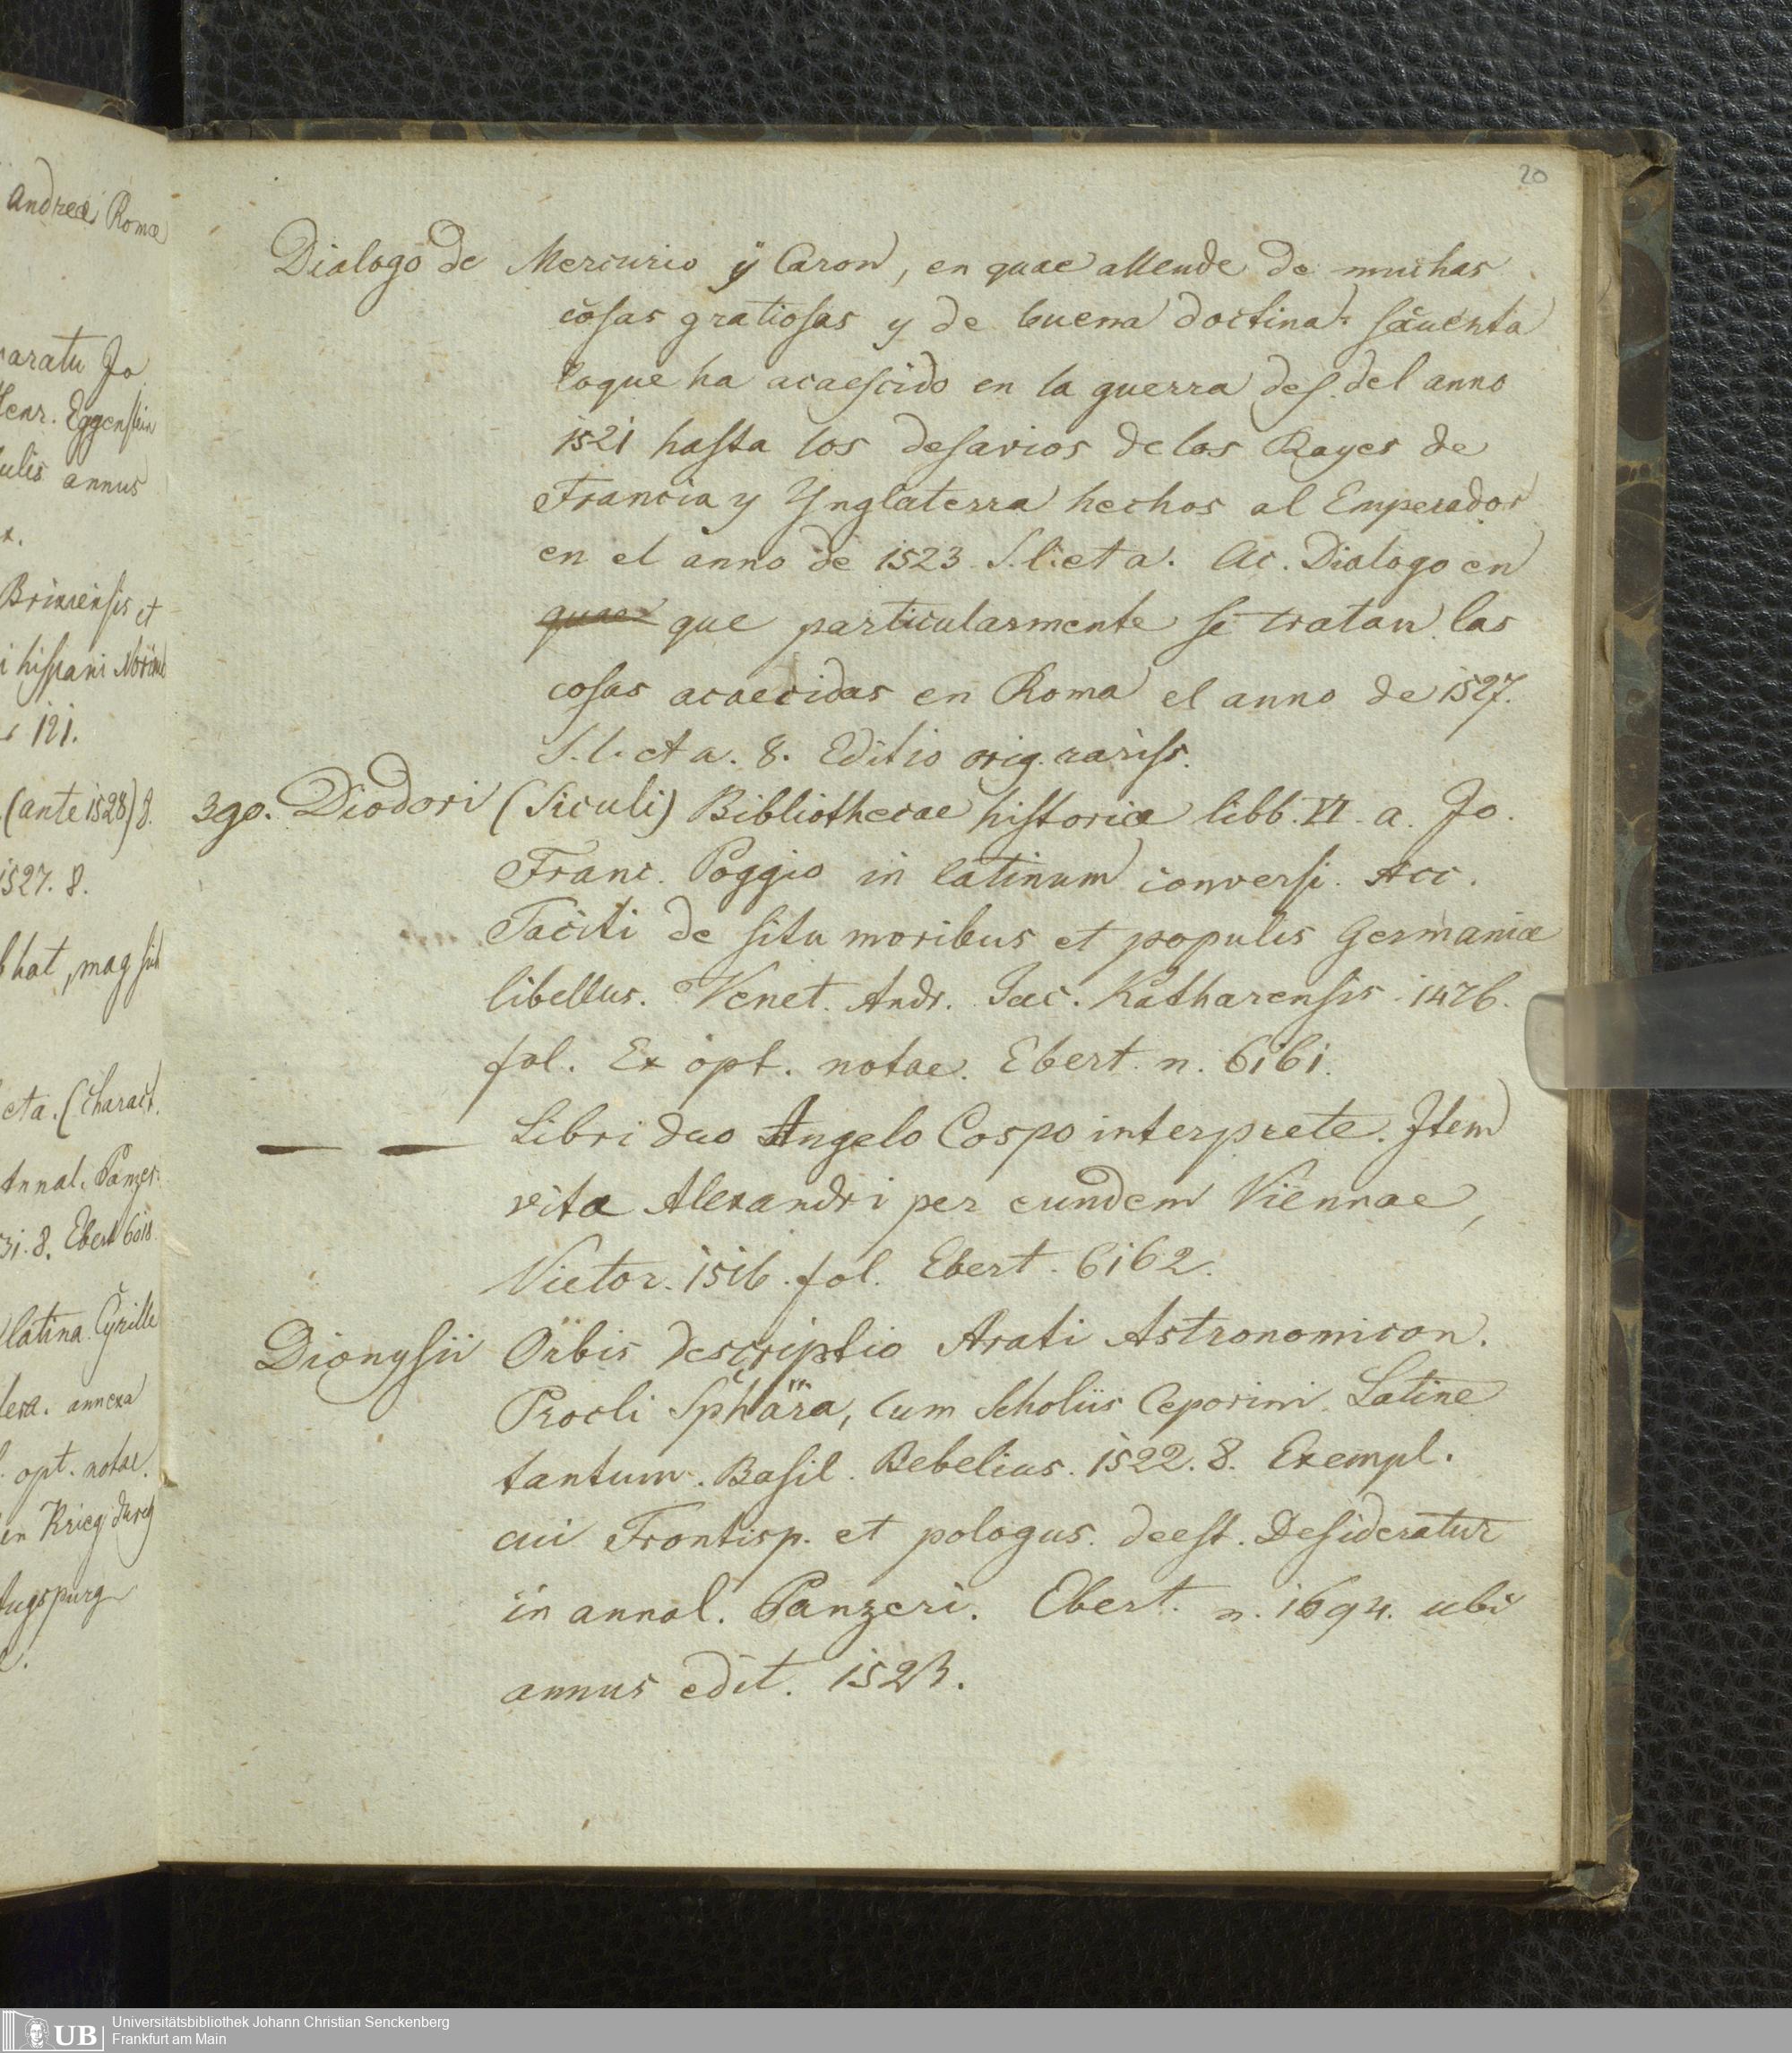 Andreæ Romæ
aratu Jo
Henr. Eggenstein
ulis annus
Brixiensis et
i hispani
121.
(ante 1528) 8.
1527. 8.
hat, mag sich
et a. (Charact.
Annal. Panzer.
31. 8. Ebert 6018
latina. Cyrille
annexa
opt. notae.
en Krieg durch
Augspurg
20
Dialogo de Mercurio ÿ Caron, en quae allende de muchas
cosas gratiosas y de buena doctina: sacuenta
loque ha acaescido en la guerra des. del anno
1521 hasta los desavios de los Rayes de
Francia y Ynglaterra hechos al Emperador
en el anno de 1523. S. l. et a. Ac. Dialogo en
quae que particularmente se tratan las
cosas acaecidas en Roma el anno de 1527.
S. l. et a. 8. Editio orig. rariss.
390. Diodori (Siculi) Bibliothecae historiæ libb. VI. a. Jo.
Franc. Poggio in latinum conversi. Acc.
Taciti de situ moribus et populis Germaniæ
libellus. Venet. Andr. Jac. Katharensis. 1476.
fol. Ex opt. notae. Ebert. n. 6161.
— — Libri duo Angelo Cospo interprete. Item
vita Alexandri per eundem Viennae,
Vietor. 1516. fol. Ebert. 6162.
Dionysii Orbis descriptio Arati Astronomicon.
Procli Sphära, cum Scholiis Ceporini. Latine
tantum. Basil. Bebelius. 1522. 8. Exempl.
cui Frontisp. et pologus. deest. Desideratur
in annal. Panzeri. Ebert. n. 1694. ubi
annus edit. 1523.
UB Universitätsbibliothek Johann Christian Senckenberg
Frankfurt am Main